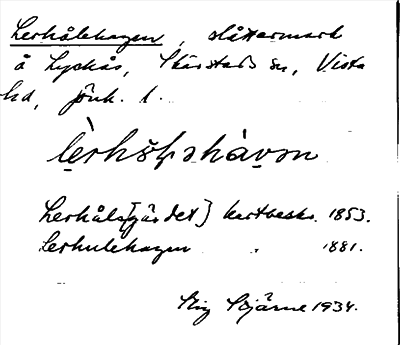 Lerhålehagen, slåttermark
å Lyckås, Skärstads sn, Vista
hd, Jönk. l.
Lerhåls[gärdet] kartbeskr. 1853.
Lerhulehagen " 1881.
Stig Bjärne 1934.